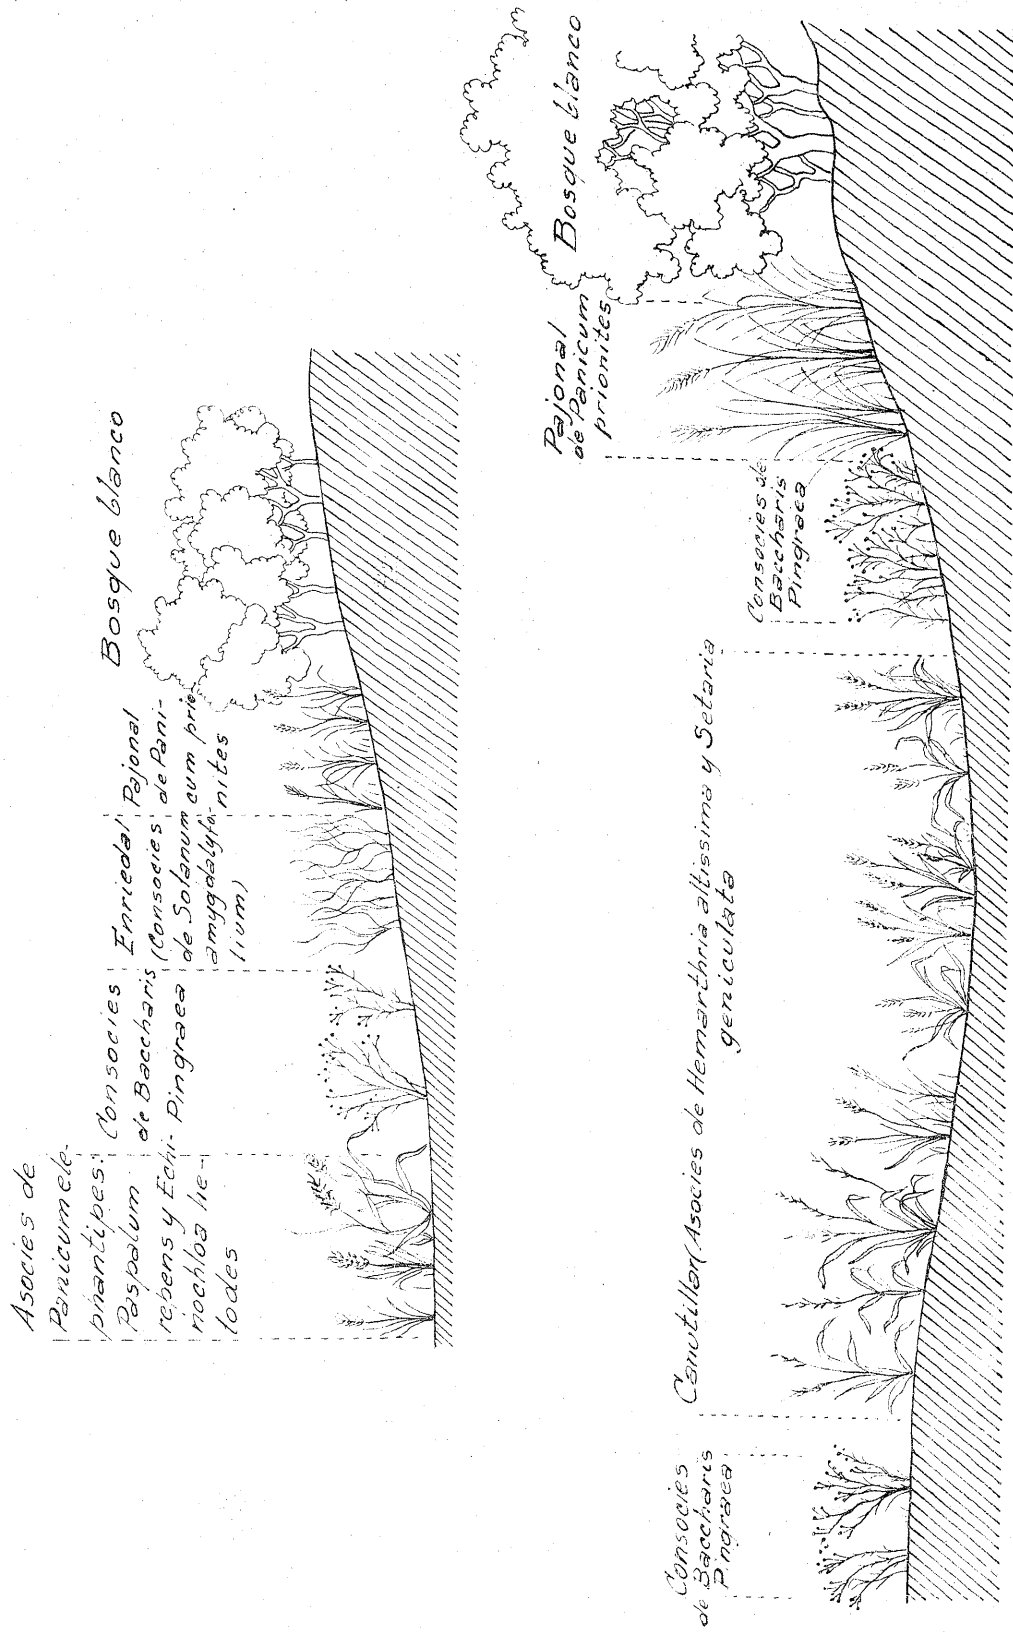 Asocies de
Panicum ele-
phantipes:
Paspalum
repens y Echi-
nochloa he-
lodes
Consocies
de Baccharis
Pingraea
Enriedal
(Consocies
de Solanum
amygdalyfo-
lium)
Pajonal
de Pani-
cum prio
nites
Bosque blanco
Consocies
de Baccharis
Pingraea
Canutillar (Asocies de Hemarthria altissima y Setaria
geniculata
Consocies de
Baccharis
Pingraea
Pajonal
de Panicum
prionites
Bosque blanco